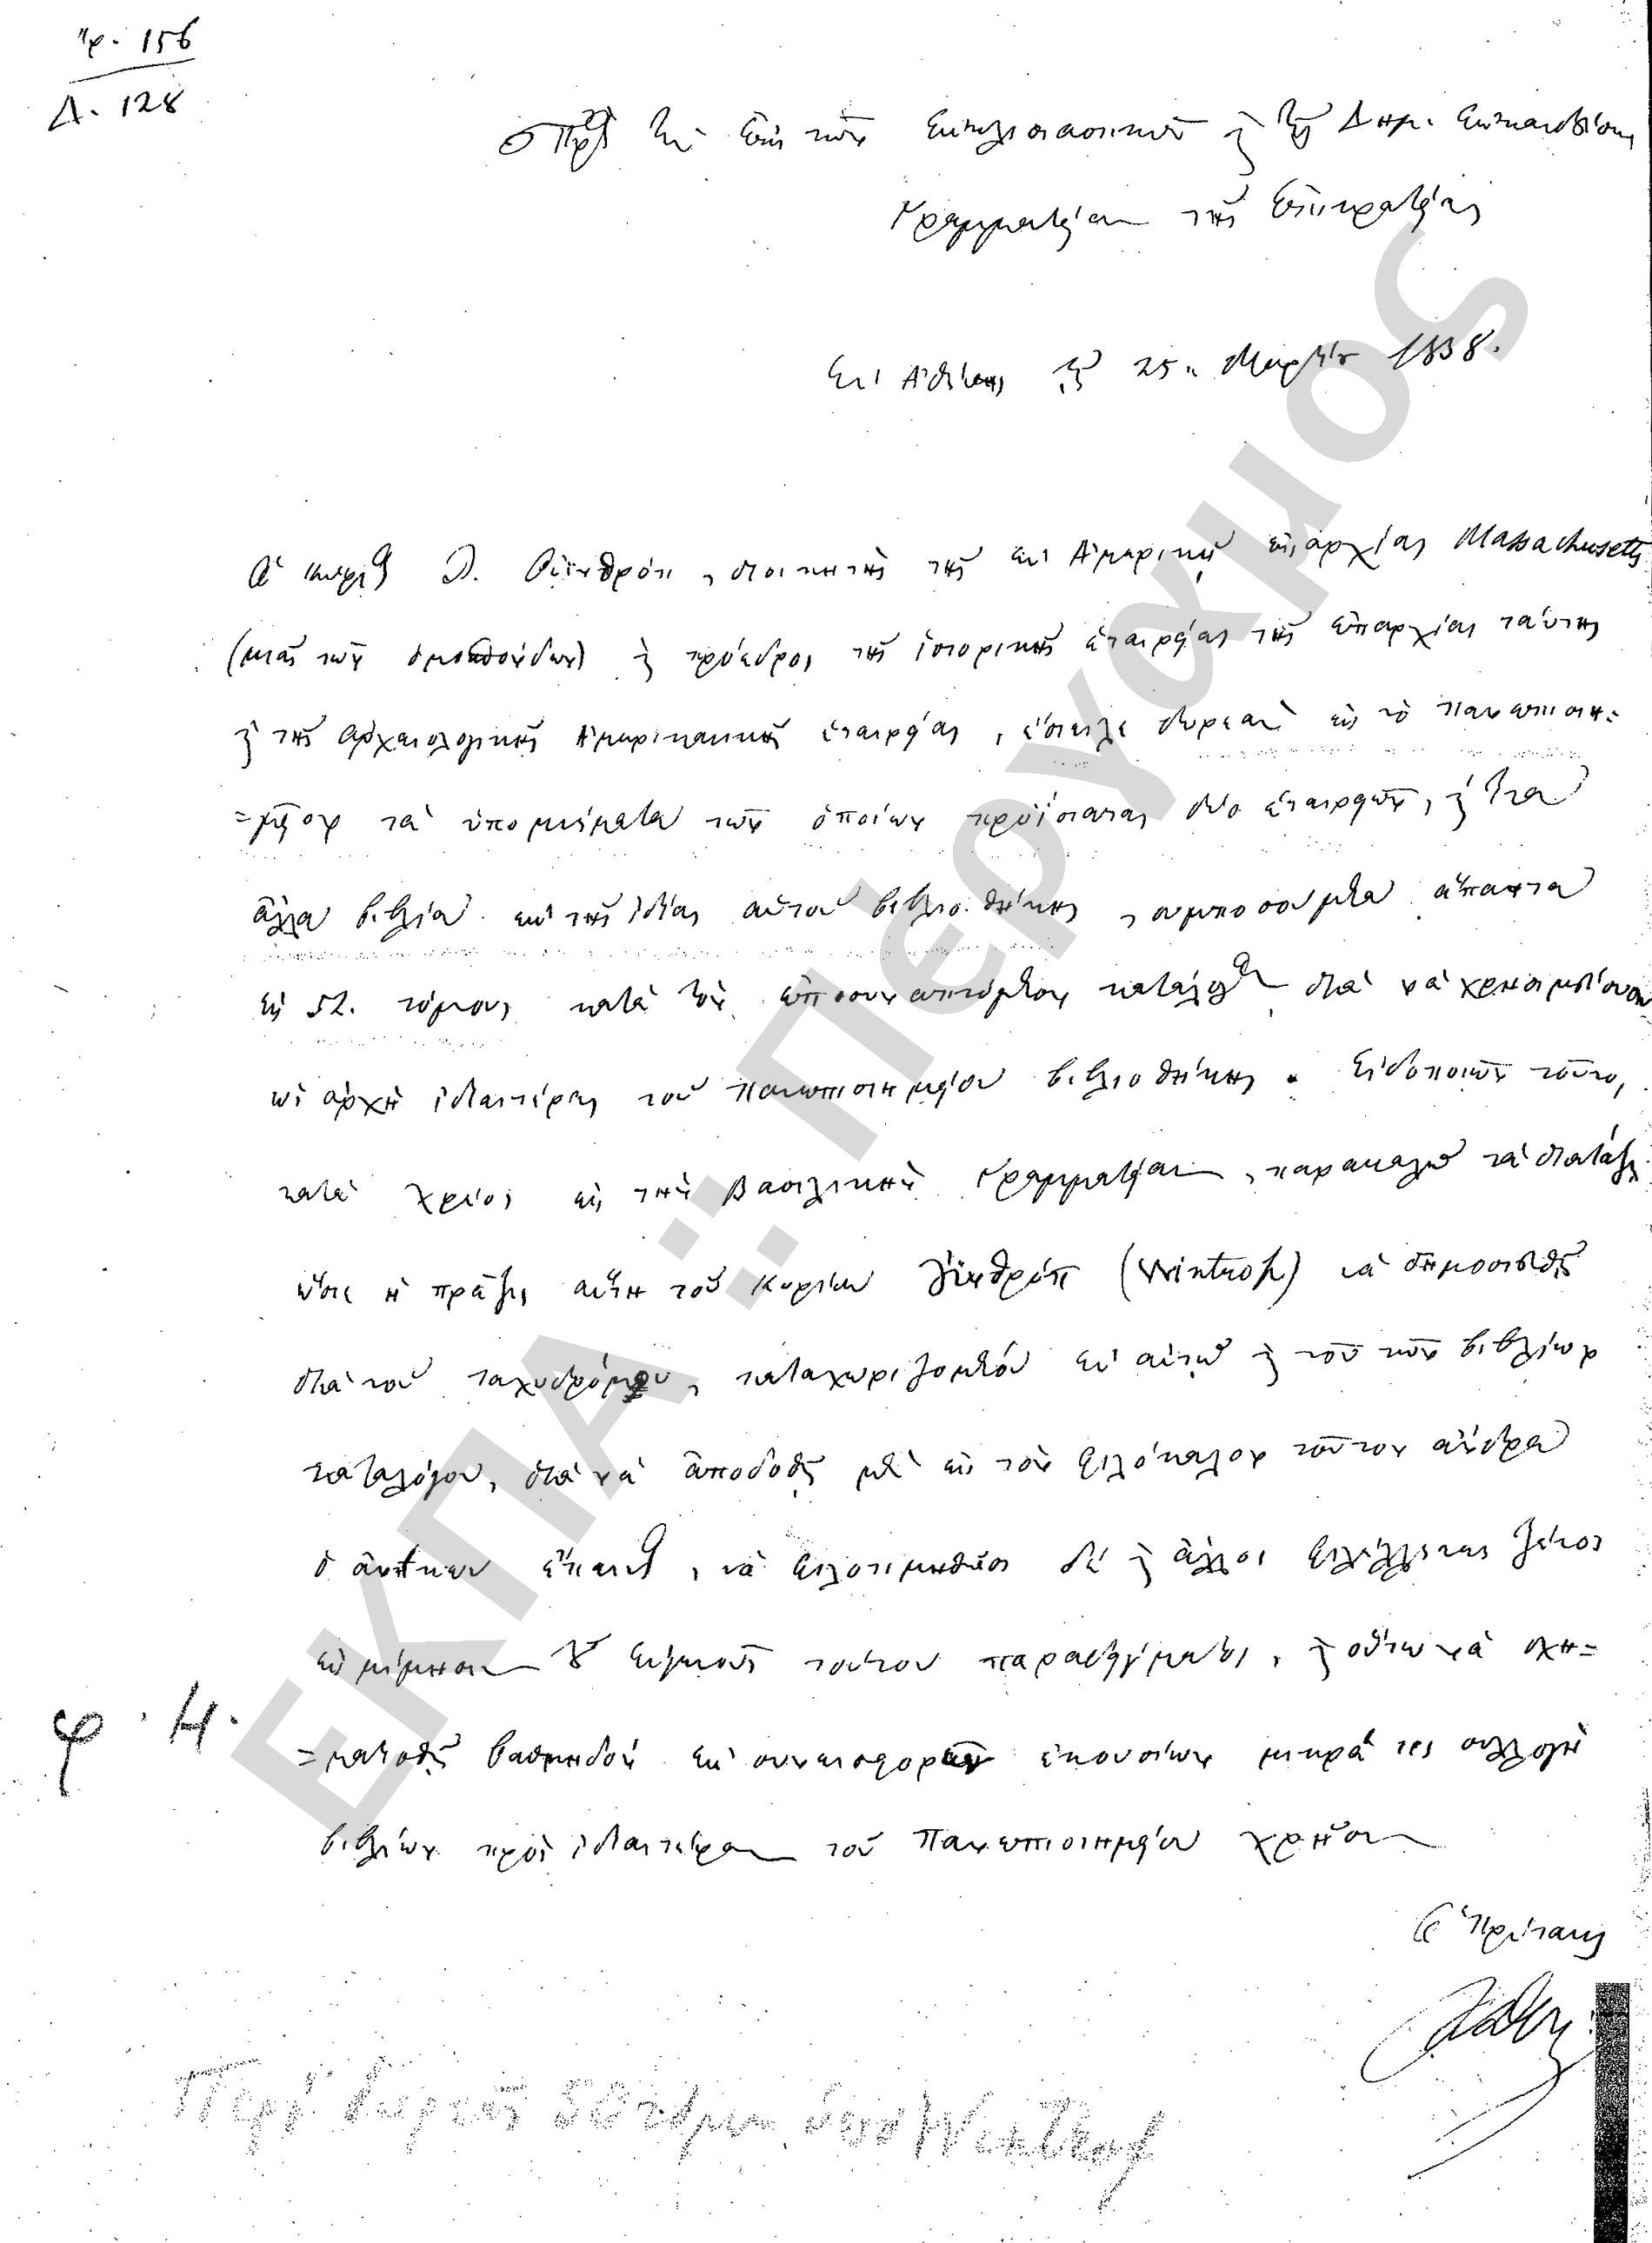 Ἀρ. 156
Δ. 128
Πρὸς τὴν ἐπὶ τῶν Ἐκκλησιαστικῶν καὶ τῆς Δημ. Ἐκπαιδεύσεως
Γραμματείαν τῆς Ἐπικρατείας
Ἐν Ἀθήναις τῇ 25 Μαρτίου 1838.
Ὁ κύριος Θ. Οὐϊνθρόπ, διοικητὴς τῆς ἐν Ἀμερικῇ ἐπαρχίας Massachusetts
(μιᾶς τῶν ὁμοσπόνδων) καὶ πρόεδρος τῆς ἱστορικῆς ἑταιρείας τῆς ἐπαρχίας ταύτης
καὶ τῆς ἀρχαιολογικῆς Ἀμερικανικῆς ἑταιρείας, ἔστειλε δωρεὰν εἰς τὸ πανεπιστή=
=μιον τὰ ὑπομνήματα τῶν ὁποίων προΐσταται δύο ἑταιρειῶν, καὶ τινα
ἄλλα βιβλία ἐκ τῆς ἰδίας αὐτοῦ βιβλιοθήκης, συμποσούμενα ἅπαντα
εἰς 52. τόμους κατὰ τὸν ἐπισυναπτόμενον κατάλογον διὰ νὰ χρησιμεύσουν
ὡς ἀρχὴ ἰδιαιτέρας τοῦ πανεπιστημείου βιβλιοθήκης. Εἰδοποιῶν τοῦτο,
κατὰ χρέος εἰς τὴν Βασιλικὴν Γραμματείαν, παρακαλῶ νὰ διατάξῃ
ὥστε ἡ πρᾶξις αὕτη τοῦ Κυρίου Οὐϊνθρόπ (Winthrop) νὰ δημοσιευθῇ
διὰ τοῦ ταχυδρόμου, καταχωριζομένου ἐν αὐτῷ καὶ τοῦ τῶν βιβλίων
καταλόγου, διὰ νὰ ἀποδοθῇ μὲν εἰς τὸν φιλόκαλον τοῦτον ἄνδρα
ὁ ἀνήκων ἔπαινος, νὰ φιλοτιμηθῶσι δὲ καὶ ἄλλοι φιλέλληνες ξένοι
εἰς μίμησιν τοῦ εὐγενοῦς τούτου παραδείγματος, καὶ οὕτω νὰ σχη=
=ματισθῇ βαθμηδὸν ἐκ συνεισφορῶν ἑκουσίων μικρά τις συλλογὴ
βιβλίων πρὸς ἰδιαιτέραν τοῦ Πανεπιστημείου χρῆσιν
φ. Η.
Ὁ Πρύτανις
Περὶ δωρεᾶς 52 τόμων ὑπὸ Winthrop
ΕΚΠΑ :: Πέργαμος